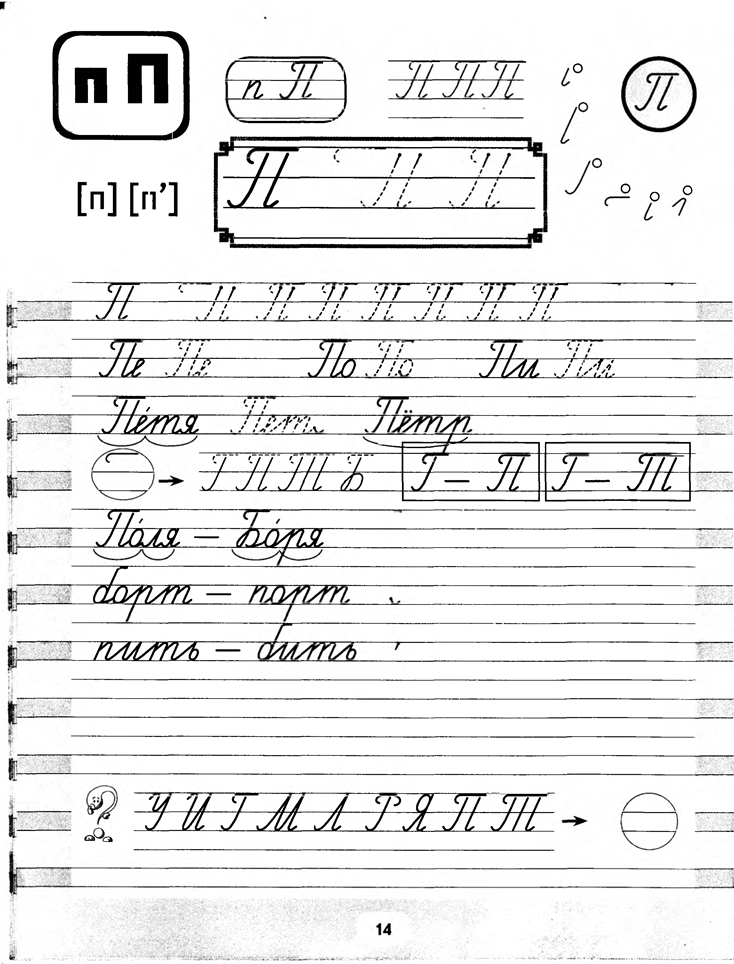 п П п П П П П П
[п] [п’] П П П
П П П П П П П П
Пе Пе По По Пи Пи
Пе́тя Петя Пётр
Г П Т Б Г – П Г – Т
По́ля – Бо́ря
борт – порт
пить – бить
У И Г М Л Р Я П Т
14